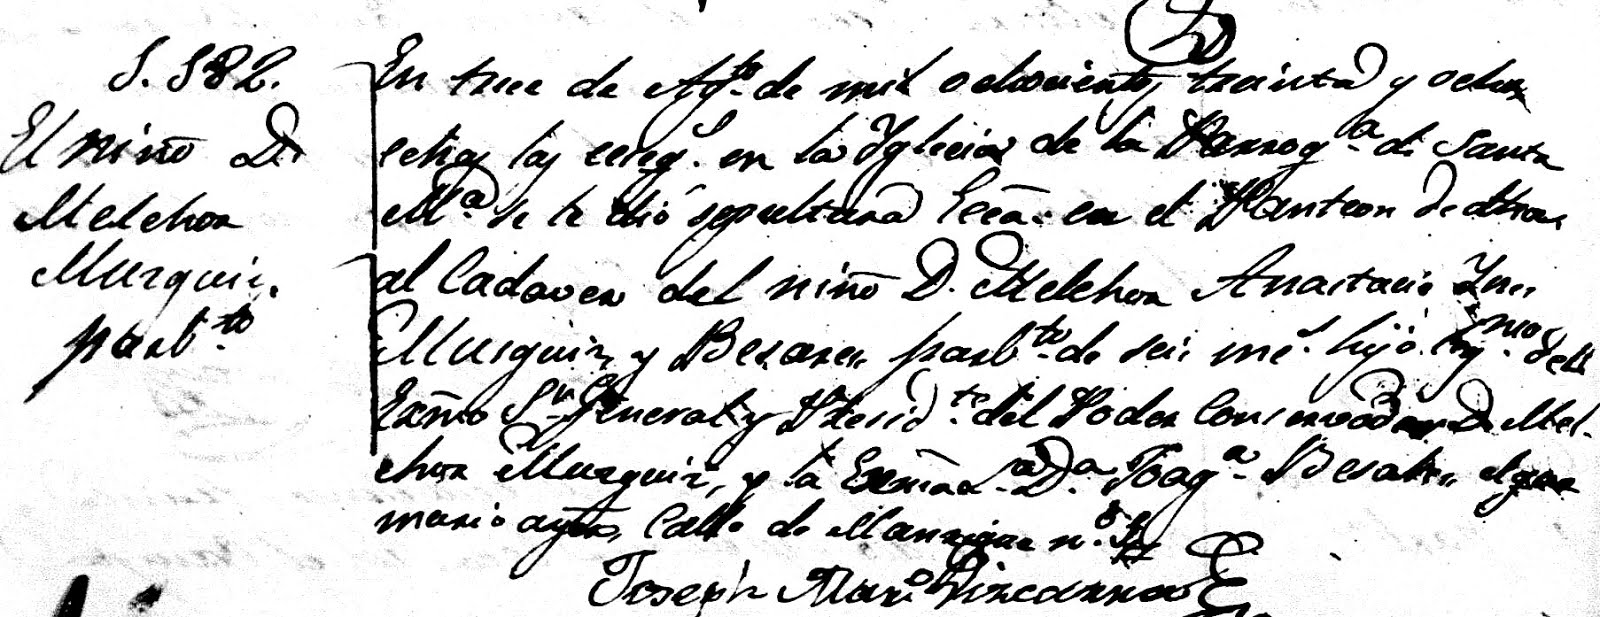 S. S82.
El niño D.
Melchor
Muzquiz,
parbto
En trece de Agto de mil ochocientos treinta y ocho
hechas las en la Yglesia de la Parroqa de Santa
Ma se le dió sepultura Ecca en el Panteon de dha
al Cadaver del niño D. Melchor Anastacio
Musquiz, y Besares parbto de seis ms hijo legmo del
Exmo Sr General y Presidte del Poder Conservador D. Mel-
chor Muzquiz, y la Exma Sa Da Joaqa Besares, el que
murio ayer, Calle de Manrique no
Joseph Maria Vizcarra